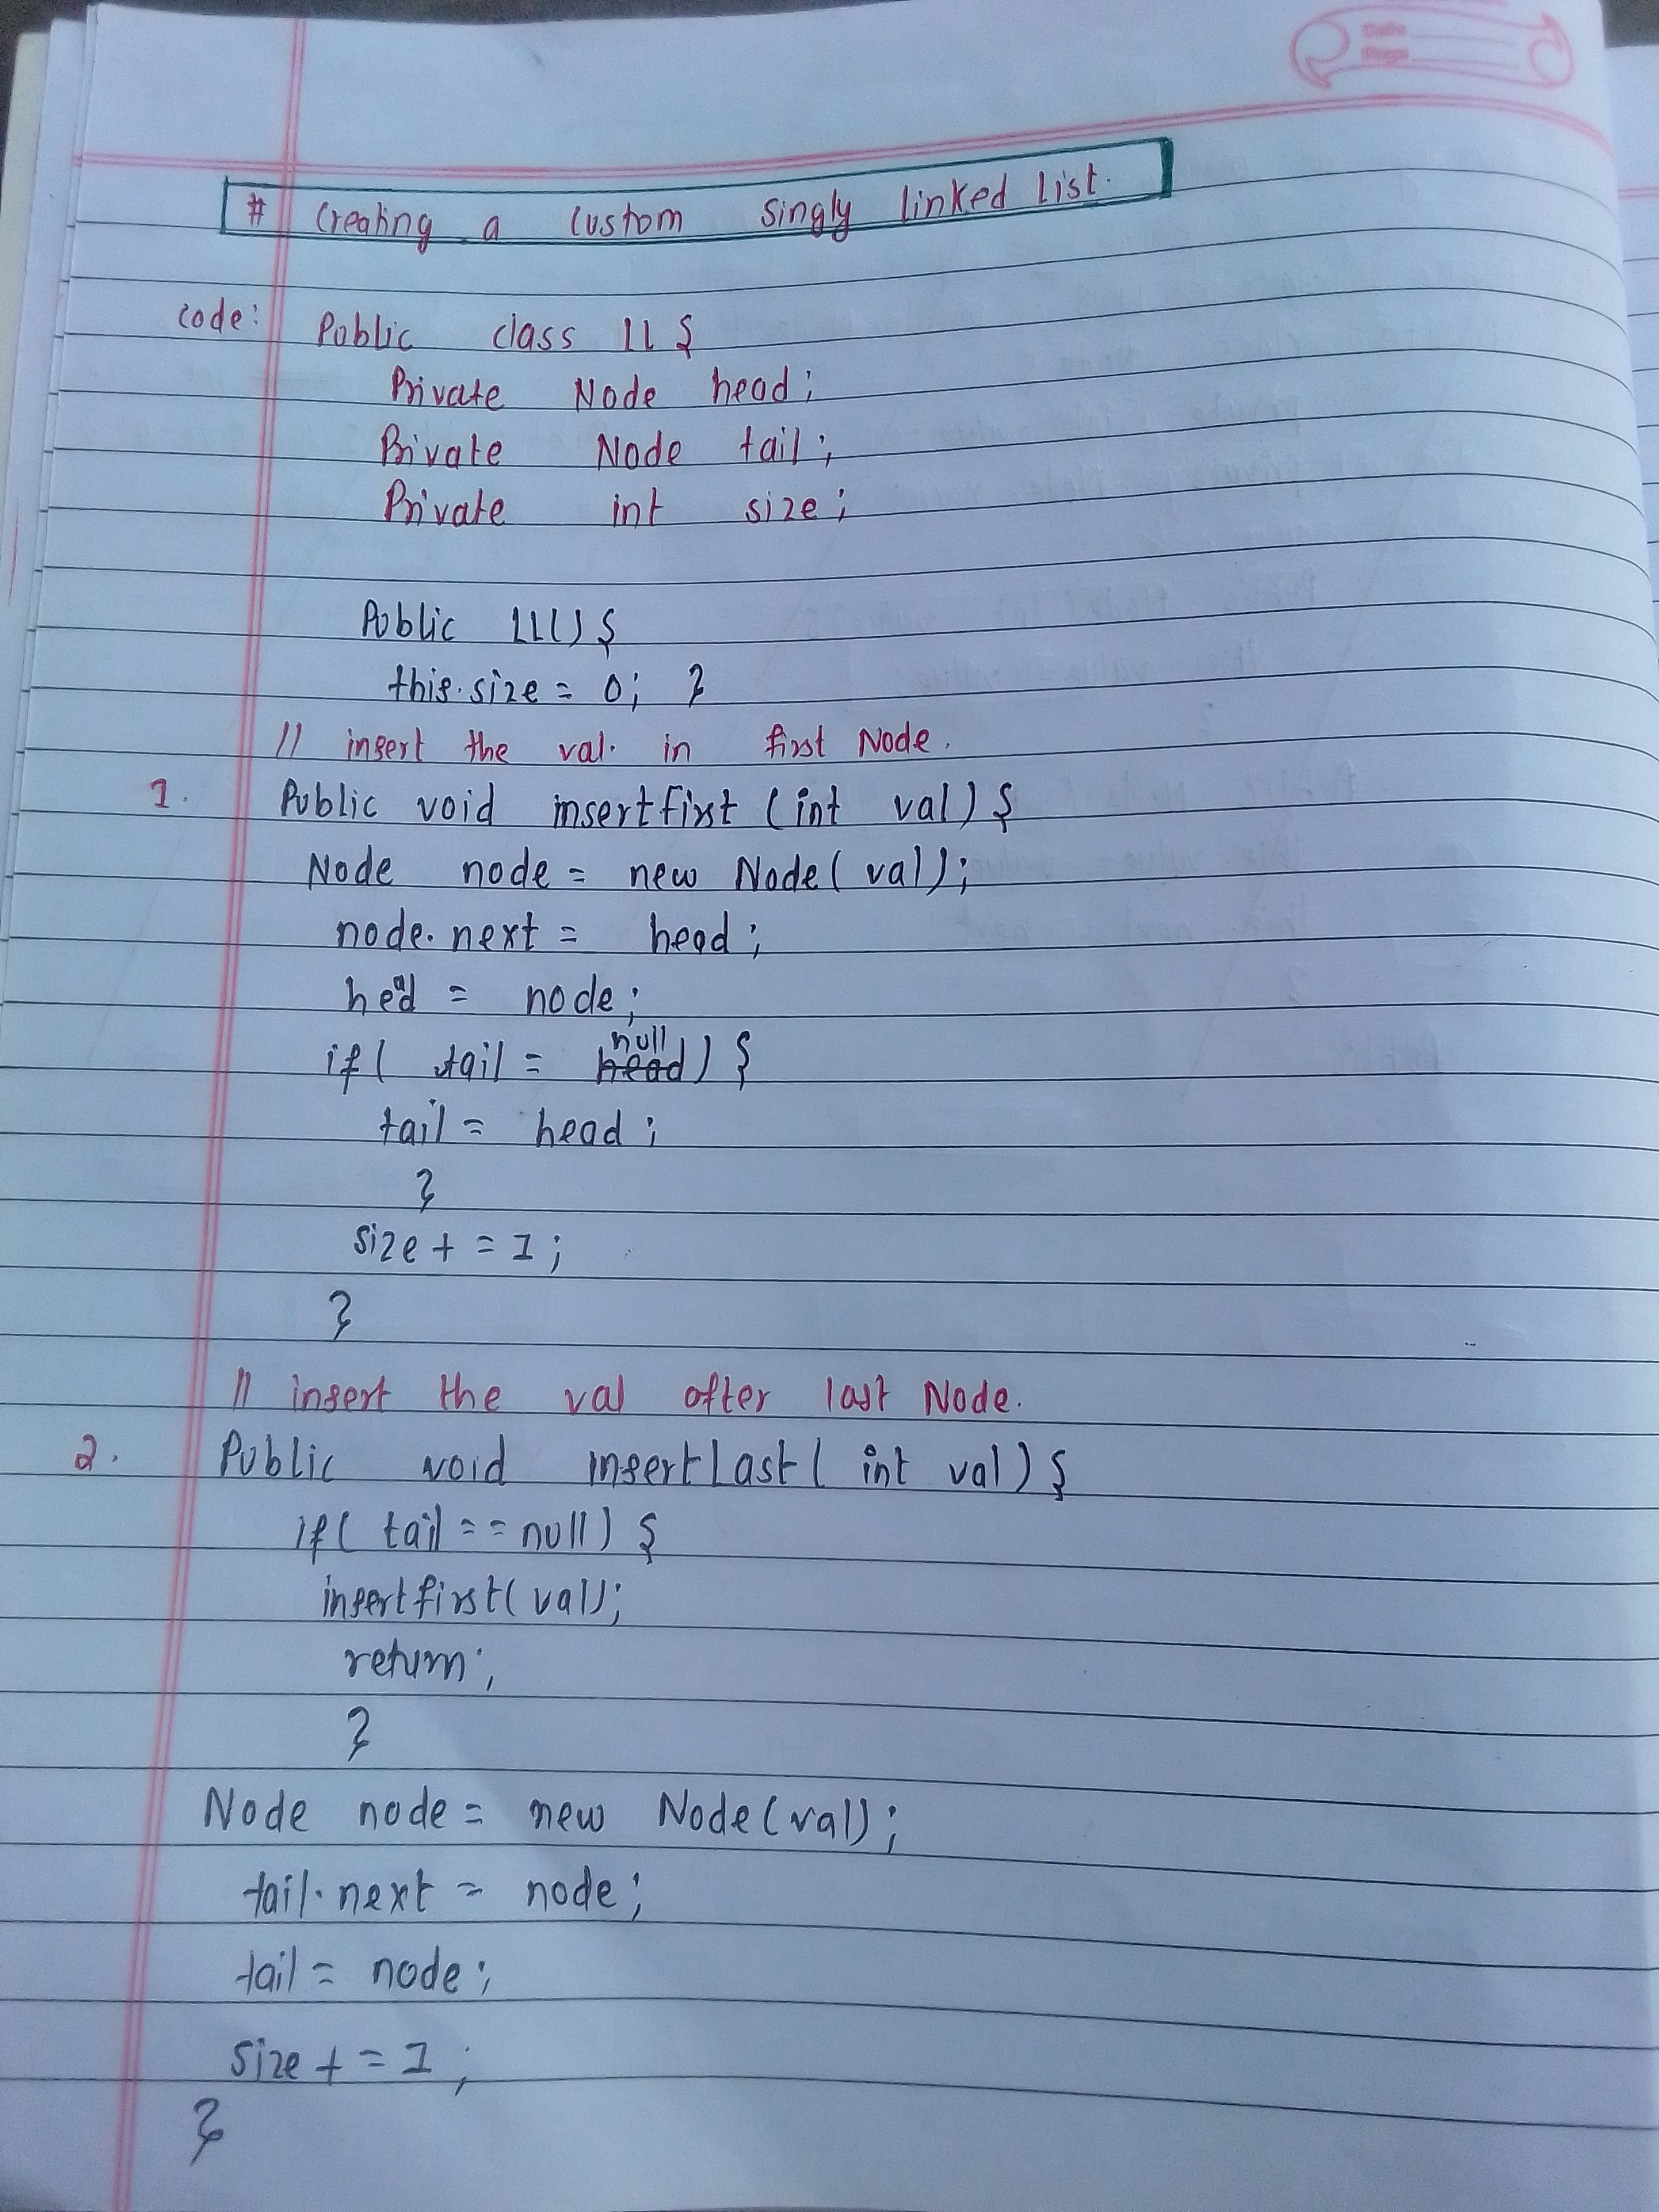 # Creating a custom singly linked list.
code: Public class LL {
Private Node head;
Private Node tail;
Private int size;
Public LL() {
this.size = 0; }
// insert the val. in first Node.
1. Public void insertfirst (int val) {
Node node = new Node( val);
node.next = head;
head = node;
if( tail = null) {
tail = head;
}
size + = 1;
}
// insert the val after last Node.
2. Public void insertLast( int val) {
if( tail = = null) {
insertfirst( val);
return;
}
Node node = new Node(val);
tail.next = node;
tail = node;
size + = 1;
}